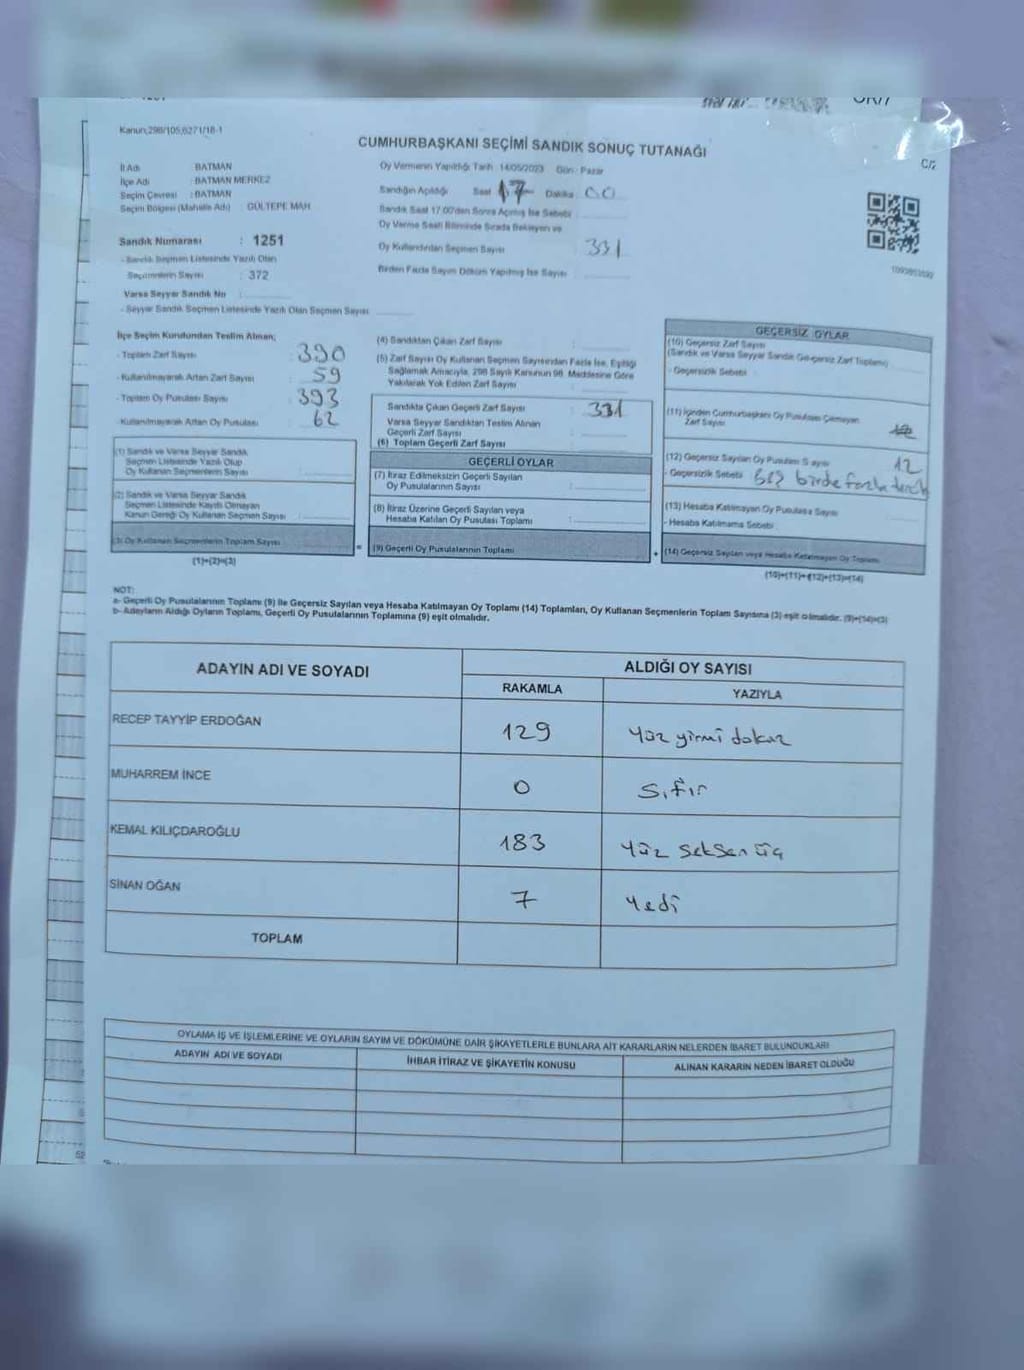 Kanun;298/105,6271/18-1
CUMHURBAŞKANI SEÇİMİ SANDIK SONUÇ TUTANAĞI
İl Adı : BATMAN
İlçe Adı : BATMAN MERKEZ
Seçim Çevresi : BATMAN
Seçim Bölgesi (Mahalle Adı) : GÜLTEPE MAH
Sandık Numarası : 1251
- Sandık Seçmen Listesinde Yazılı Olan
Seçmenlerin Sayısı : 372
Varsa Seyyar Sandık No :
- Seyyar Sandık Seçmen Listesinde Yazılı Olan Seçmen Sayısı
Oy Vermenin Yapıldığı Tarih 14/05/2023 Gün: Pazar
Sandığın Açıldığı Saat 17 Dakika 00
Sandık Saat 17:00'den Sonra Açılmış İse Sebebi
Oy Verme Saati Bitiminde Sırada Bekleyen ve
Oy Kullandırılan Seçmen Sayısı 331
Birden Fazla Sayım Döküm Yapılmış İse Sayısı
1093853592
C/2
İlçe Seçim Kurulundan Teslim Alınan;
- Toplam Zarf Sayısı : 390
- Kullanılmayarak Artan Zarf Sayısı : 59
- Toplam Oy Pusulası Sayısı : 393
- Kullanılmayarak Artan Oy Pusulası : 62
(1) Sandık ve Varsa Seyyar Sandık
Seçmen Listesinde Yazılı Olup
Oy Kullanan Seçmenlerin Sayısı
(2) Sandık ve Varsa Seyyar Sandık
Seçmen Listesinde Kayıtlı Olmayan
Kanun Gereği Oy Kullanan Seçmen Sayısı
(3) Oy Kullanan Seçmenlerin Toplam Sayısı
(1)+(2)=(3)
(4) Sandıktan Çıkan Zarf Sayısı
(5) Zarf Sayısı Oy Kullanan Seçmen Sayısından Fazla İse, Eşitliği
Sağlamak Amacıyla, 298 Sayılı Kanunun 98. Maddesine Göre
Yakılarak Yok Edilen Zarf Sayısı
Sandıkta Çıkan Geçerli Zarf Sayısı : 331
Varsa Seyyar Sandıktan Teslim Alınan
Geçerli Zarf Sayısı
(6) Toplam Geçerli Zarf Sayısı
GEÇERLİ OYLAR
(7) İtiraz Edilmeksizin Geçerli Sayılan
Oy Pusulalarının Sayısı
(8) İtiraz Üzerine Geçerli Sayılan veya
Hesaba Katılan Oy Pusulası Toplamı
= (9) Geçerli Oy Pusulalarının Toplamı
GEÇERSİZ OYLAR
(10) Geçersiz Zarf Sayısı
(Sandık ve Varsa Seyyar Sandık Geçersiz Zarf Toplamı)
- Geçersizlik Sebebi
(11) İçinden Cumhurbaşkanı Oy Pusulası Çıkmayan
Zarf Sayısı
(12) Geçersiz Sayılan Oy Pusulası Sayısı 12
- Geçersizlik Sebebi birde fazla
(13) Hesaba Katılmayan Oy Pusulası Sayısı
- Hesaba Katılmama Sebebi
+ (14) Geçersiz Sayılan veya Hesaba Katılmayan Oy Toplamı
(10)+(11)+(12)+(13)=(14)
NOT:
a- Geçerli Oy Pusulalarının Toplamı (9) ile Geçersiz Sayılan veya Hesaba Katılmayan Oy Toplamı (14) Toplamları, Oy Kullanan Seçmenlerin Toplam Sayısına (3) eşit olmalıdır. (9)+(14)=(3)
b- Adayların Aldığı Oyların Toplamı, Geçerli Oy Pusulalarının Toplamına (9) eşit olmalıdır.
ADAYIN ADI VE SOYADI
ALDIĞI OY SAYISI
RAKAMLA YAZIYLA
RECEP TAYYİP ERDOĞAN 129 Yüz yirmi dokuz
MUHARREM İNCE 0 Sıfır
KEMAL KILIÇDAROĞLU 183 Yüz seksen üç
SİNAN OĞAN 7 Yedi
TOPLAM
OYLAMA İŞ VE İŞLEMLERİNE VE OYLARIN SAYIM VE DÖKÜMÜNE DAİR ŞİKAYETLERLE BUNLARA AİT KARARLARIN NELERDEN İBARET BULUNDUKLARI
ADAYIN ADI VE SOYADI İHBAR İTİRAZ VE ŞİKAYETİN KONUSU ALINAN KARARIN NEDEN İBARET OLDUĞU